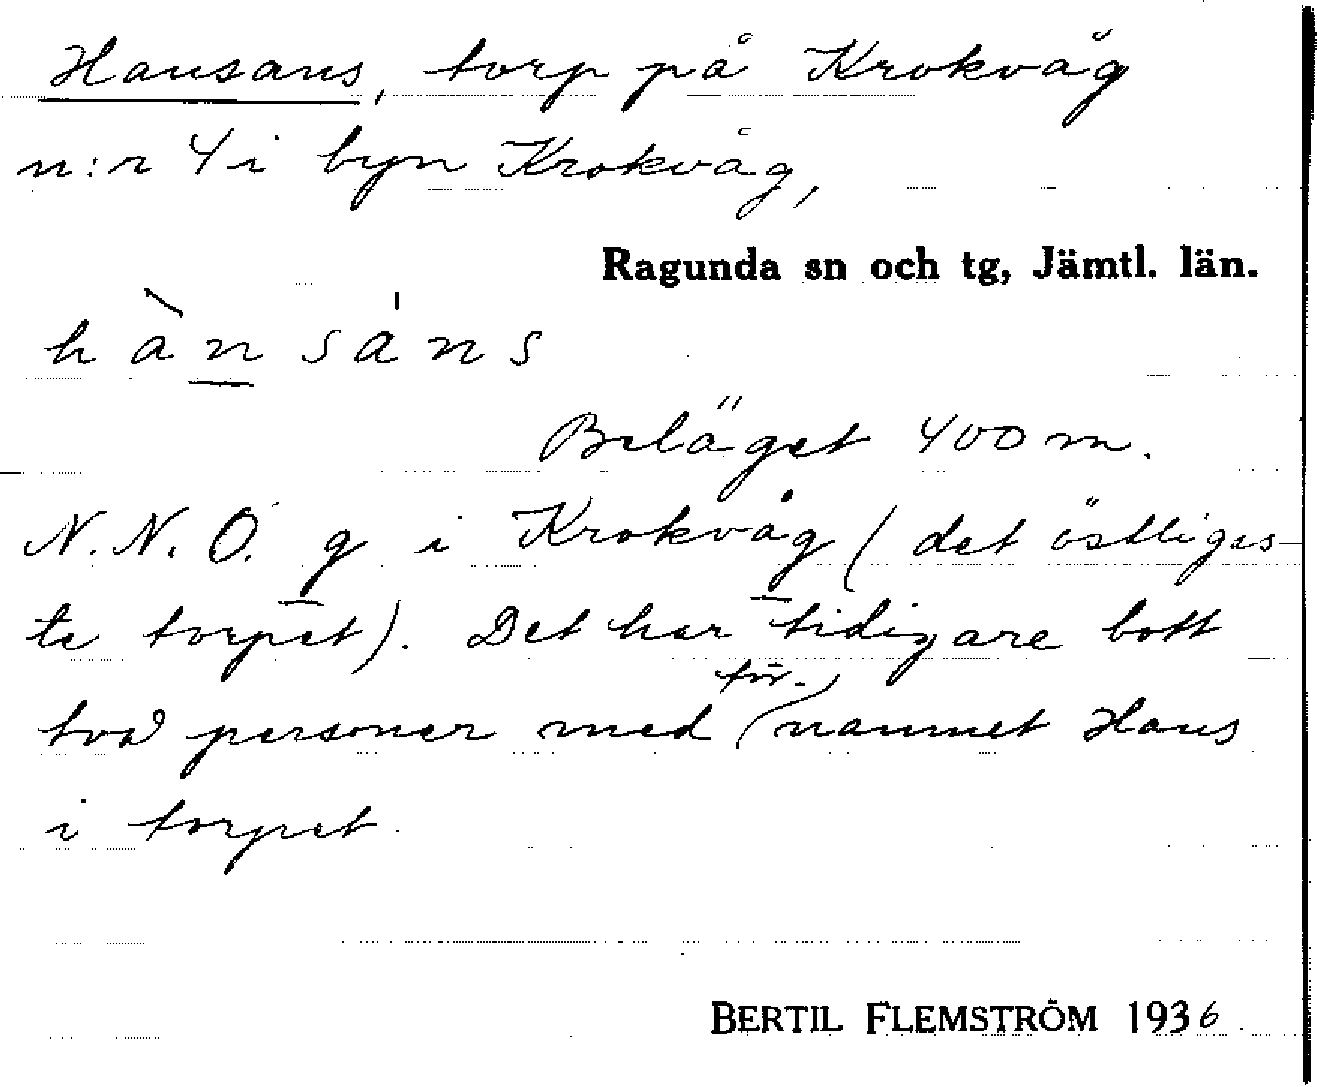 Hansans, torp på Krokvåg
n:r 4 i byn Krokvåg,
Ragunda sn och tg, Jämtl. län.
hànsáns
Beläget 400 m.
N.N.O. g i Krokvåg (det östligas-
te torpet). Det har tidigare bott
för-
två personer med namnet Hans
i torpet.
BERTIL FLEMSTRÖM 1936